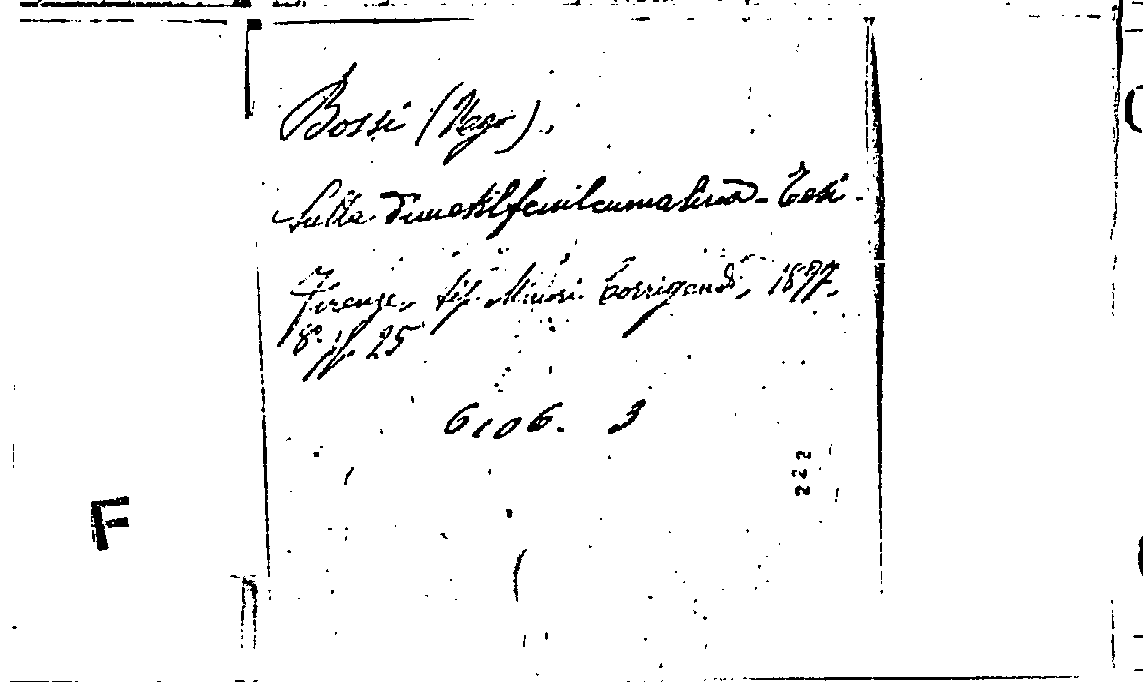 Bossi (Vago).
Sulla dimetilfenilcumalina - Tesi.
Firenze, tip. Minori Corrigendi, 1897.
8° pp. 25
6106. 3
222
F